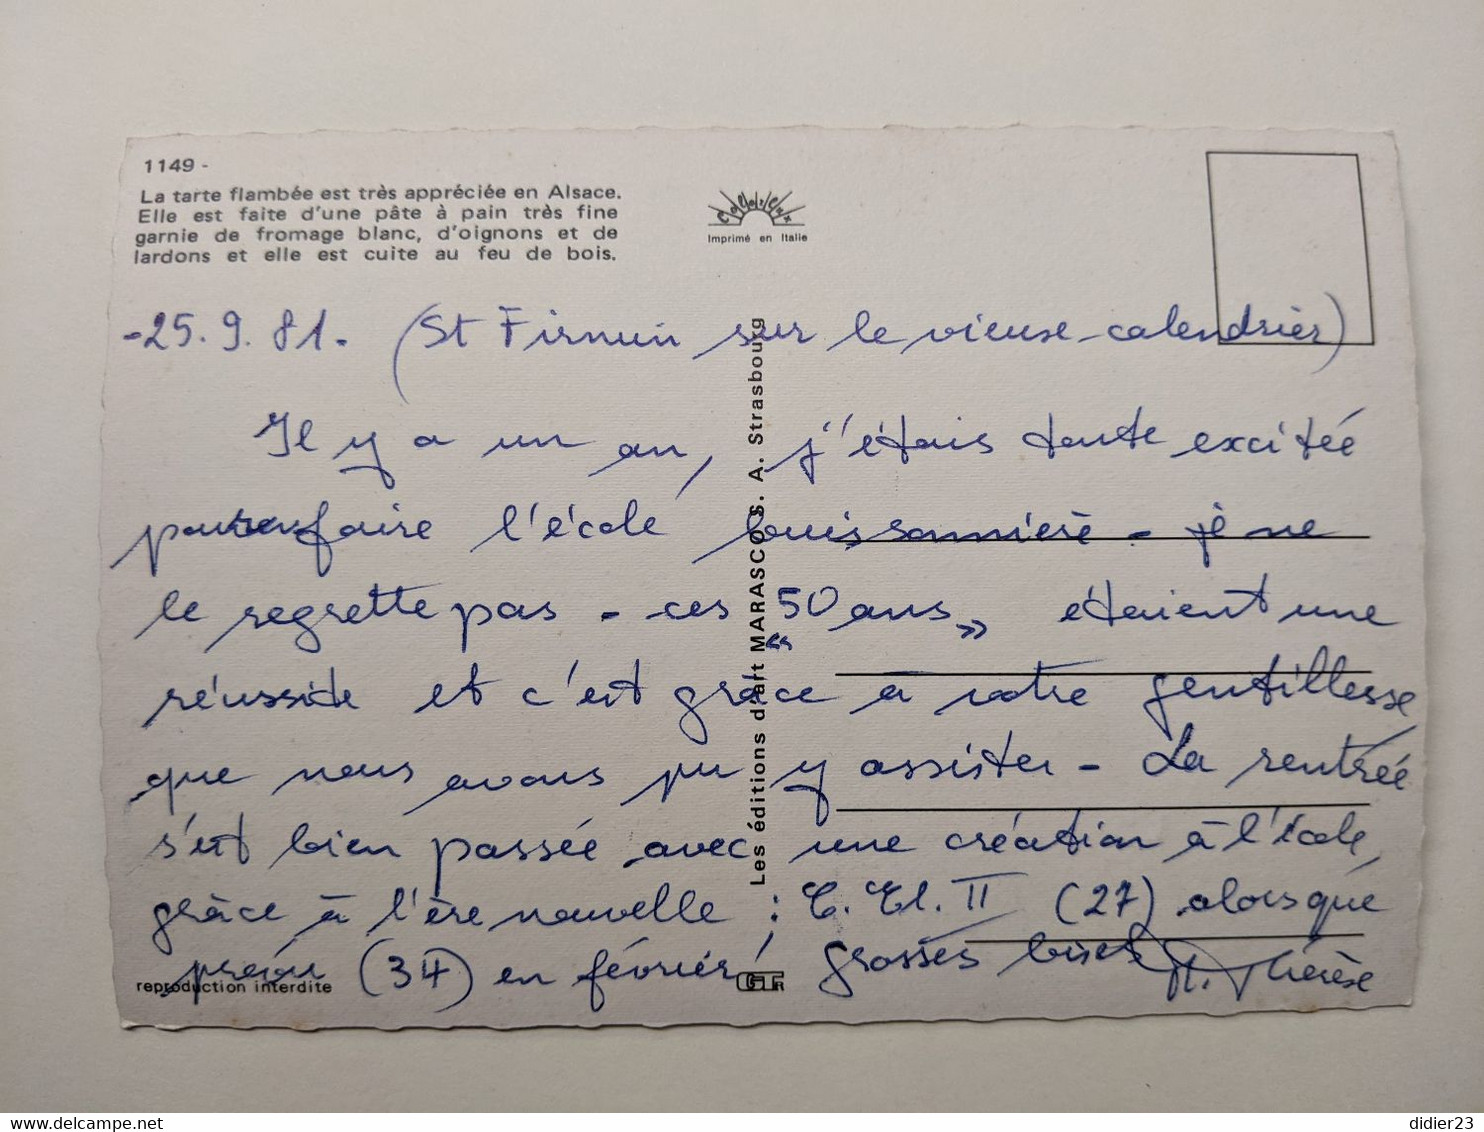 1149 -
La tarte flambée est très appréciée en Alsace.
Elle est faite d'une pâte à pain très fine
garnie de fromage blanc, d'oignons et de
lardons et elle est cuite au feu de bois.
Imprimé en Italie
Les éditions d'art MARASCO S. A. Strasbourg
- 25.9.81. (St Firmin sur le vieux calendrier)
Il y a un an, j'étais toute excitée
faire l'école buissonnière - je ne
le regrette pas - ces "50 ans" étaient une
réussite et c'est grâce à votre gentillesse
que nous avons pu y assister - La rentrée
s'est bien passée avec une création à l'école
grâce à l'ère nouvelle : C. El. II (27) alors que
prévu (34) en février ! grosses bises M. Thérèse
reproduction interdite
delcampe.net
didier23